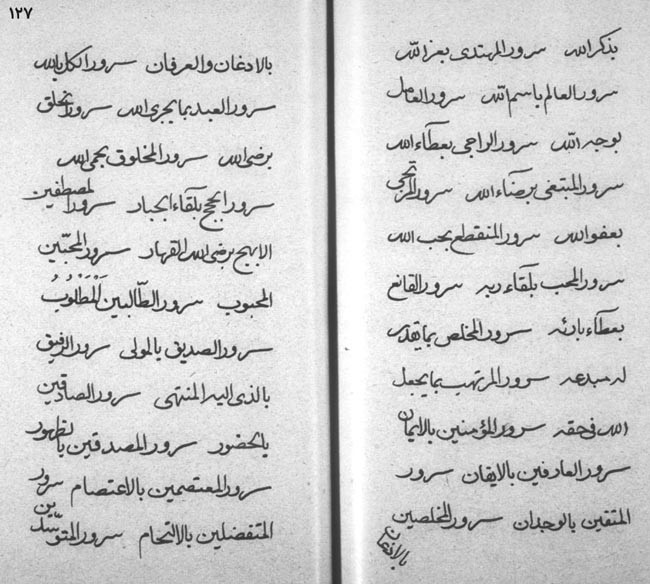 ١٢٧
بذكر الله سرور المهتدى بعز الله
سرور العالم باسم الله سرور العامل
بوجه الله سرور الراجى بعطآء الله
سرور المبتغى برضآء الله سرور المرتجى
بعفو الله سرور المنقطع بحب الله
سرور المحب بلقاء ربه سرور القانع
بعطآء بارئه سرور المخلص بما يقدر
له مبدعه سرور المرتهب بما يجعل
الله فى حقه سرور المؤمنين بالايمان
سرور العارفين بالايقان سرور
المتقين بالوجدان سرور المخلصين
بالاذعان
بالاذعان والعرفان سرور الكل بالله
سرور العبد بما يجرى الله سرور الخلق
برضى الله سرور المخلوق بحمى الله
سرور البهج بلقاء الجبار سرور المصطفين
الابهج برضى الله القهار سرور المحبين
المحبوب سرور الطالبين المطلوب
سرور الصديق بالمولى سرور الرفيق
بالذى اليه المنتهى سرور الصادقين
بالحضور سرور المصدقين بالظهور
سرور المعتصمين بالاعتصام سرور
المتفضلين بالالتحام سرور المتوسدين